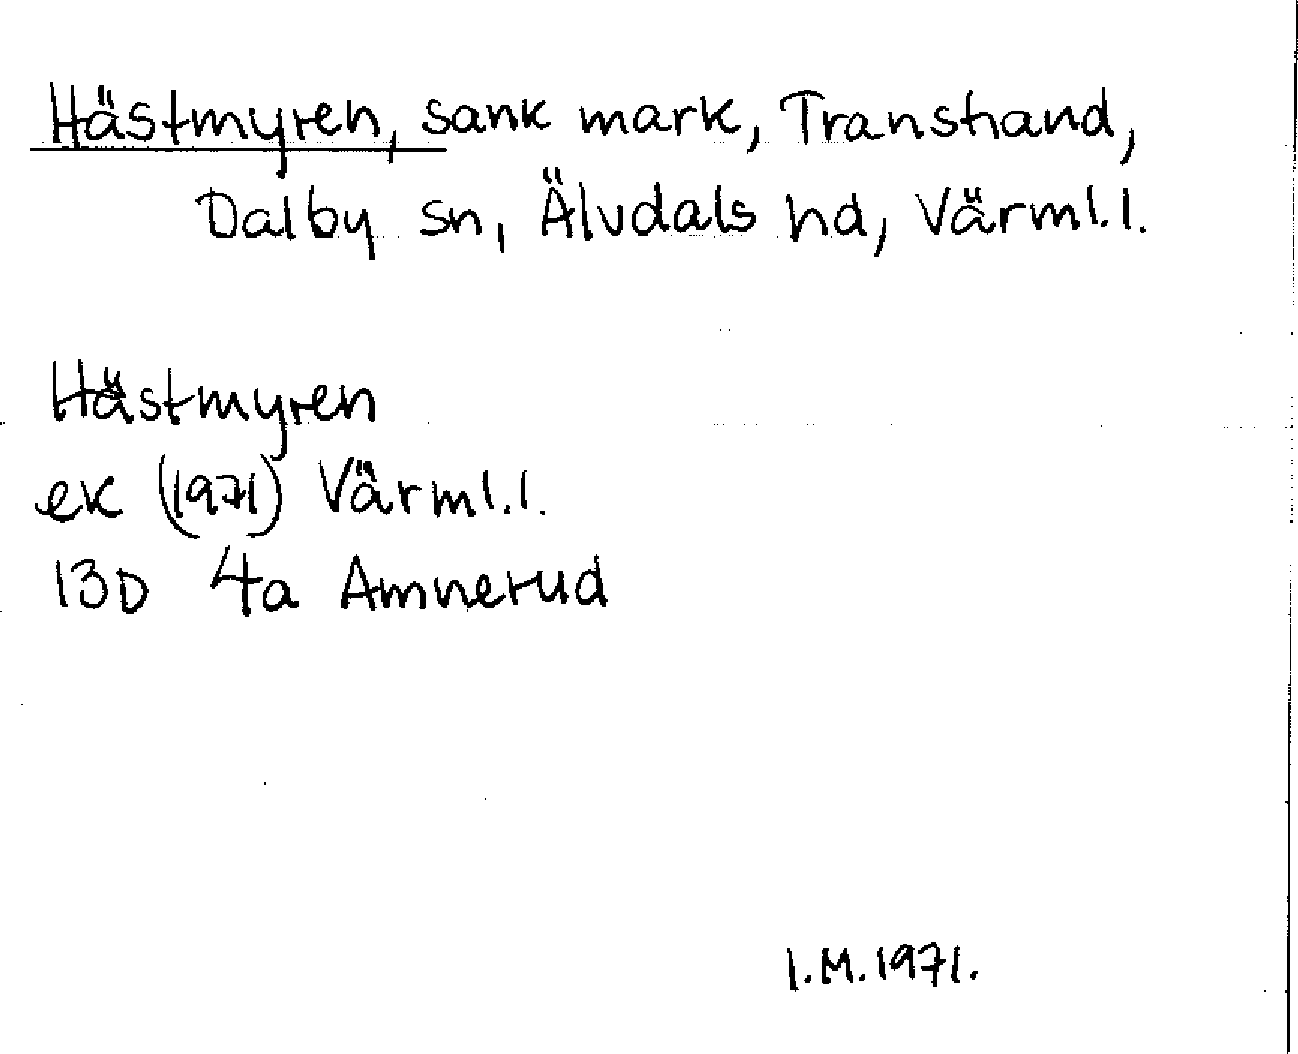 Hästmyren, sank mark, Transtrand,
Dalby sn, Älvdals hd, Värml.l.
Hästmyren
ek (1971) Värml.l.
13D 4a Amnerud
I.M.1971.